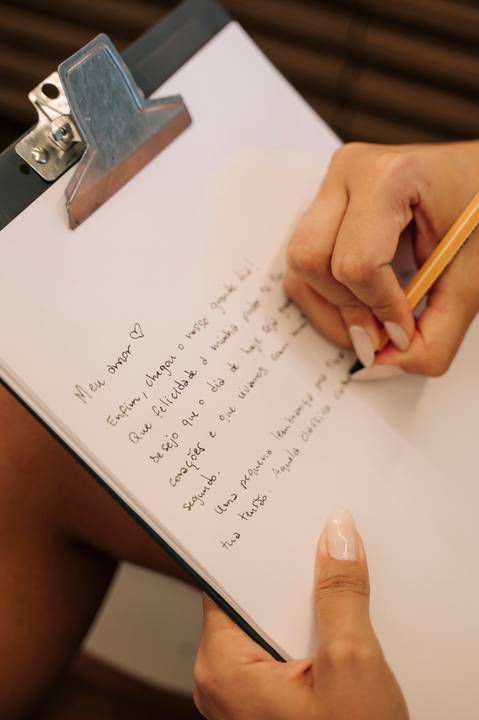 Meu amor ♡
Enfim, chegou o nosso grande dia!
Que felicidade a minha poder
Desejo que o dia de hoje seja
corações e que vivamos cada
segundo.
Uma pequena lembrança pra
tua tensão. Aquela clássica